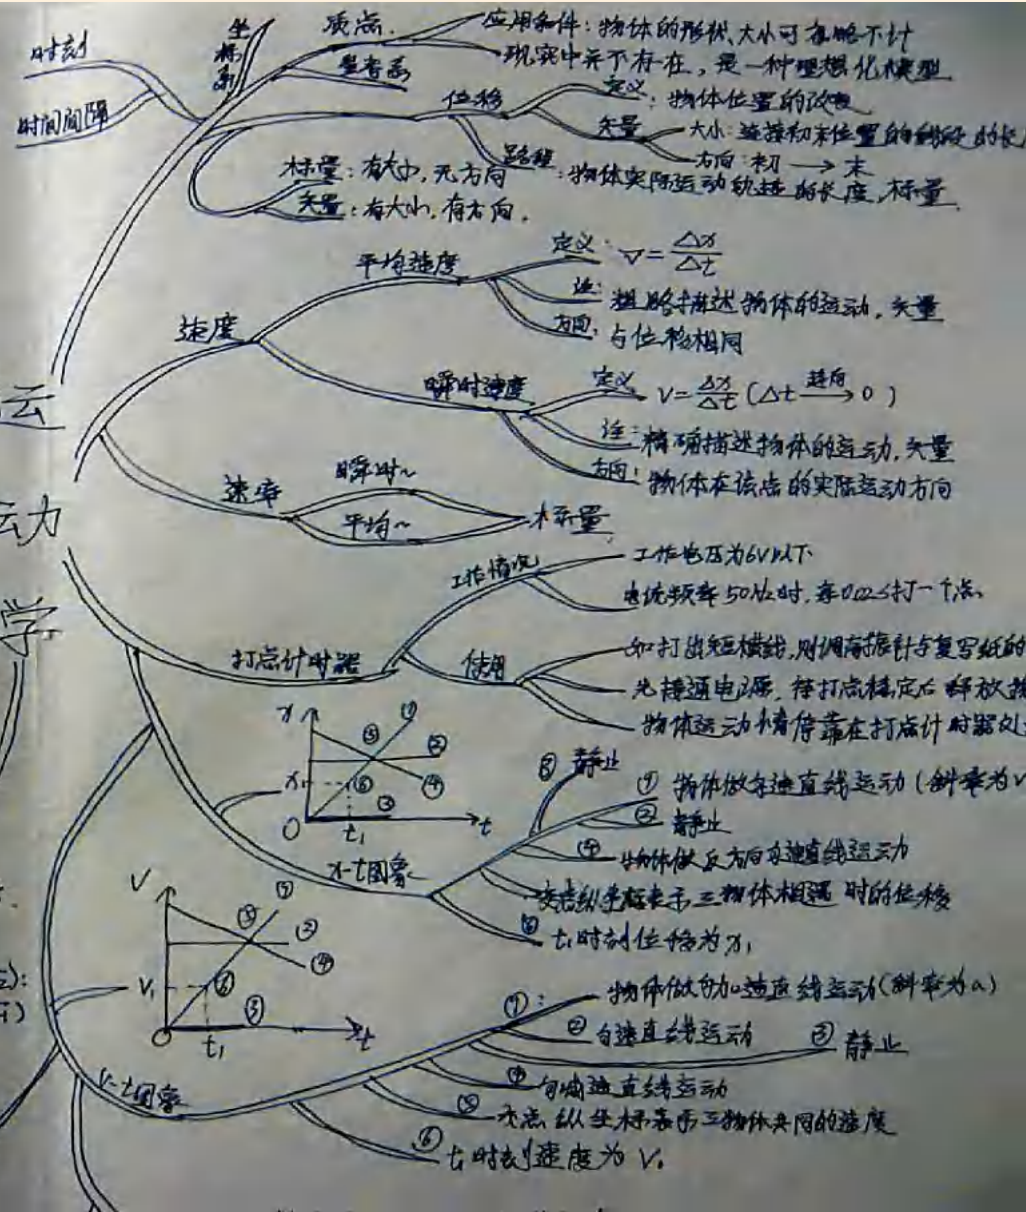 时刻
时间间隔
坐标系
质点
应用条件：物体的形状、大小可忽略不计
现实中并不存在，是一种理想化模型
参考系
位移
定义：物体位置的改变
矢量
大小：连接初末位置的线段的长
方向：初→末
路程：物体实际运动轨迹的长度，标量
标量：有大小，无方向
矢量：有大小，有方向。
运
动力
学
速度
平均速度
定义：v=Δx/Δt
注：粗略描述物体的运动，矢量
方向：与位移相同
瞬时速度
定义 V=Δx/Δt（Δt趋向→0）
注：精确描述物体的运动，矢量
方向：物体在该点的实际运动方向
速率
瞬时~
平均~
标量
打点计时器
工作情况
工作电压为6V以下
电流频率50Hz时，每0.02s打一个点
使用
如打出短横线，则调高振针与复写纸的
先接通电源，待打点稳定后释放
物体运动前停靠在打点计时器处
x
⑤ ① ②
x₁ ⑥ ④
③
O t₁ t
x-t图象
③ 静止
① 物体做匀速直线运动（斜率为v
② 静止
④ 物体做反方向匀速直线运动
交点纵坐标表示三物体相遇时的位移
⑥ t₁时刻位移为x₁
V
① ⑤ ②
④
V₁ ⑥
③
O t₁ t
v-t图象
①：物体做匀加速直线运动（斜率为a）
② 匀速直线运动
③ 静止
④ 匀减速直线运动
⑤ 交点纵坐标表示三物体共同的速度
⑥ t₁时刻速度为V₁